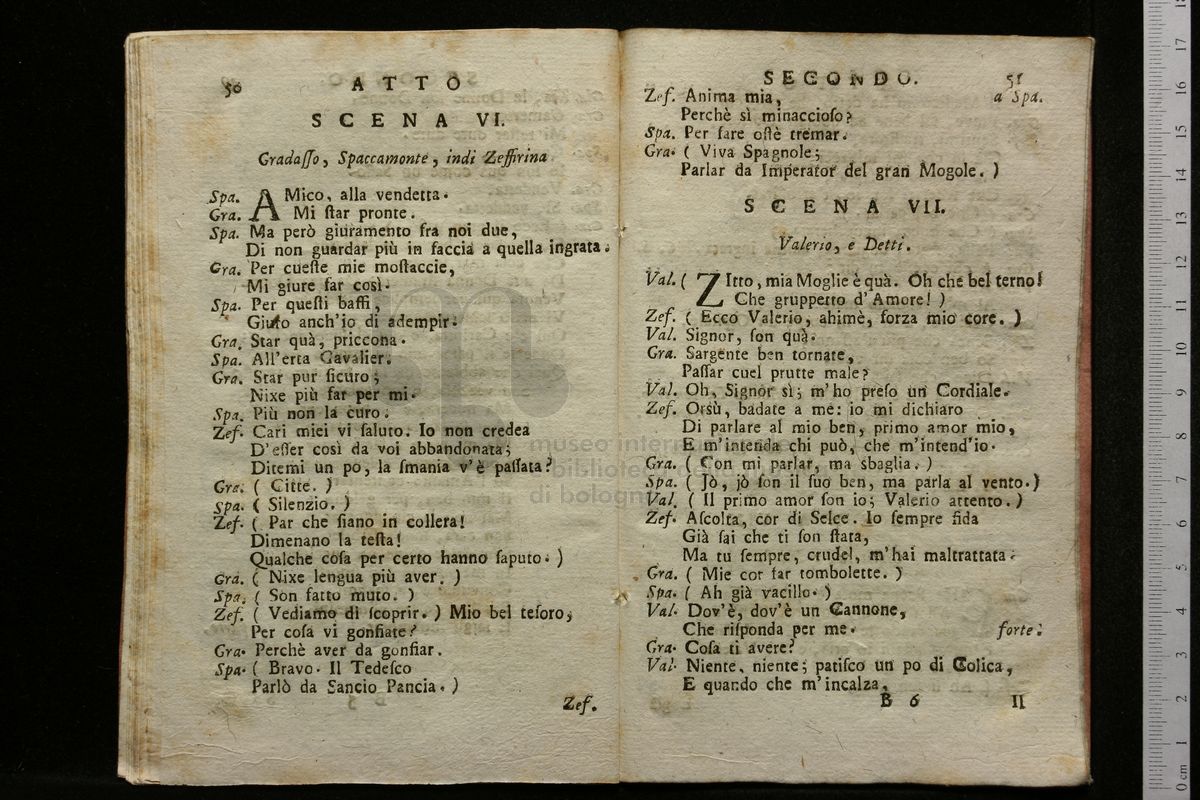 50 ATTO
SCENA VI.
Gradaſſo, Spaccamonte, indi Zeffirina
Spa. AMico, alla vendetta.
Gra. Mi ſtar pronte.
Spa. Ma però giuramento fra noi due,
Di non guardar più in faccia a quella ingrata.
Gra. Per cueſte mie moſtaccie,
Mi giure far così.
Spa. Per queſti baffi,
Giuro anch'io di adempir.
Gra. Star quà, priccona.
Spa. All'erta Cavalier.
Gra. Star pur ſicuro;
Nixe più far per mi.
Spa. Più non la curo.
Zef. Cari miei vi ſaluto. Io non credea
D'eſſer così da voi abbandonata;
Ditemi un po, la ſmania v'è paſſata?
Gra. ( Citte. )
Spa. ( Silenzio. )
Zef. ( Par che ſiano in collera!
Dimenano la teſta!
Qualche coſa per certo hanno ſaputo. )
Gra. ( Nixe lengua più aver. )
Spa. ( Son fatto muto. )
Zef. ( Vediamo di ſcoprir. ) Mio bel teſoro,
Per coſa vi gonfiate?
Gra. Perchè aver da gonfiar.
Spa. ( Bravo. Il Tedeſco
Parlò da Sancio Pancia. )
Zef.
SECONDO. 51
Zef. Anima mia, a Spa.
Perchè sì minaccioſo?
Spa. Per fare oſtè tremar.
Gra. ( Viva Spagnole;
Parlar da Imperator del gran Mogole. )
SCENA VII.
Valerio, e Detti.
Val. ( ZItto, mia Moglie è quà. Oh che bel terno!
Che gruppetto d'Amore! )
Zef. ( Ecco Valerio, ahimè, forza mio core. )
Val. Signor, ſon quà.
Gra. Sargente ben tornate,
Paſſar cuel prutte male?
Val. Oh, Signor sì; m'ho preſo un Cordiale.
Zef. Orsù, badate a me: io mi dichiaro
Di parlare al mio ben, primo amor mio,
E m'intenda chi può, che m'intend'io.
Gra. ( Con mi parlar, ma sbaglia. )
Spa. ( Jò, jò ſon il ſuo ben, ma parla al vento. )
Val. ( Il primo amor ſon io; Valerio attento. )
Zef. Aſcolta, cor di Selce. Io ſempre fida
Già ſai che ti ſon ſtata,
Ma tu ſempre, crudel, m'hai maltrattata.
Gra. ( Mie cor far tombolette. )
Spa. ( Ah già vacillo. )
Val. Dov'è, dov'è un Cannone,
Che riſponda per me. forte.
Gra. Coſa ti avere?
Val. Niente, niente; patiſco un po di Colica,
E quando che m'incalza,
B 6 II
museo
biblioteca
di bologna